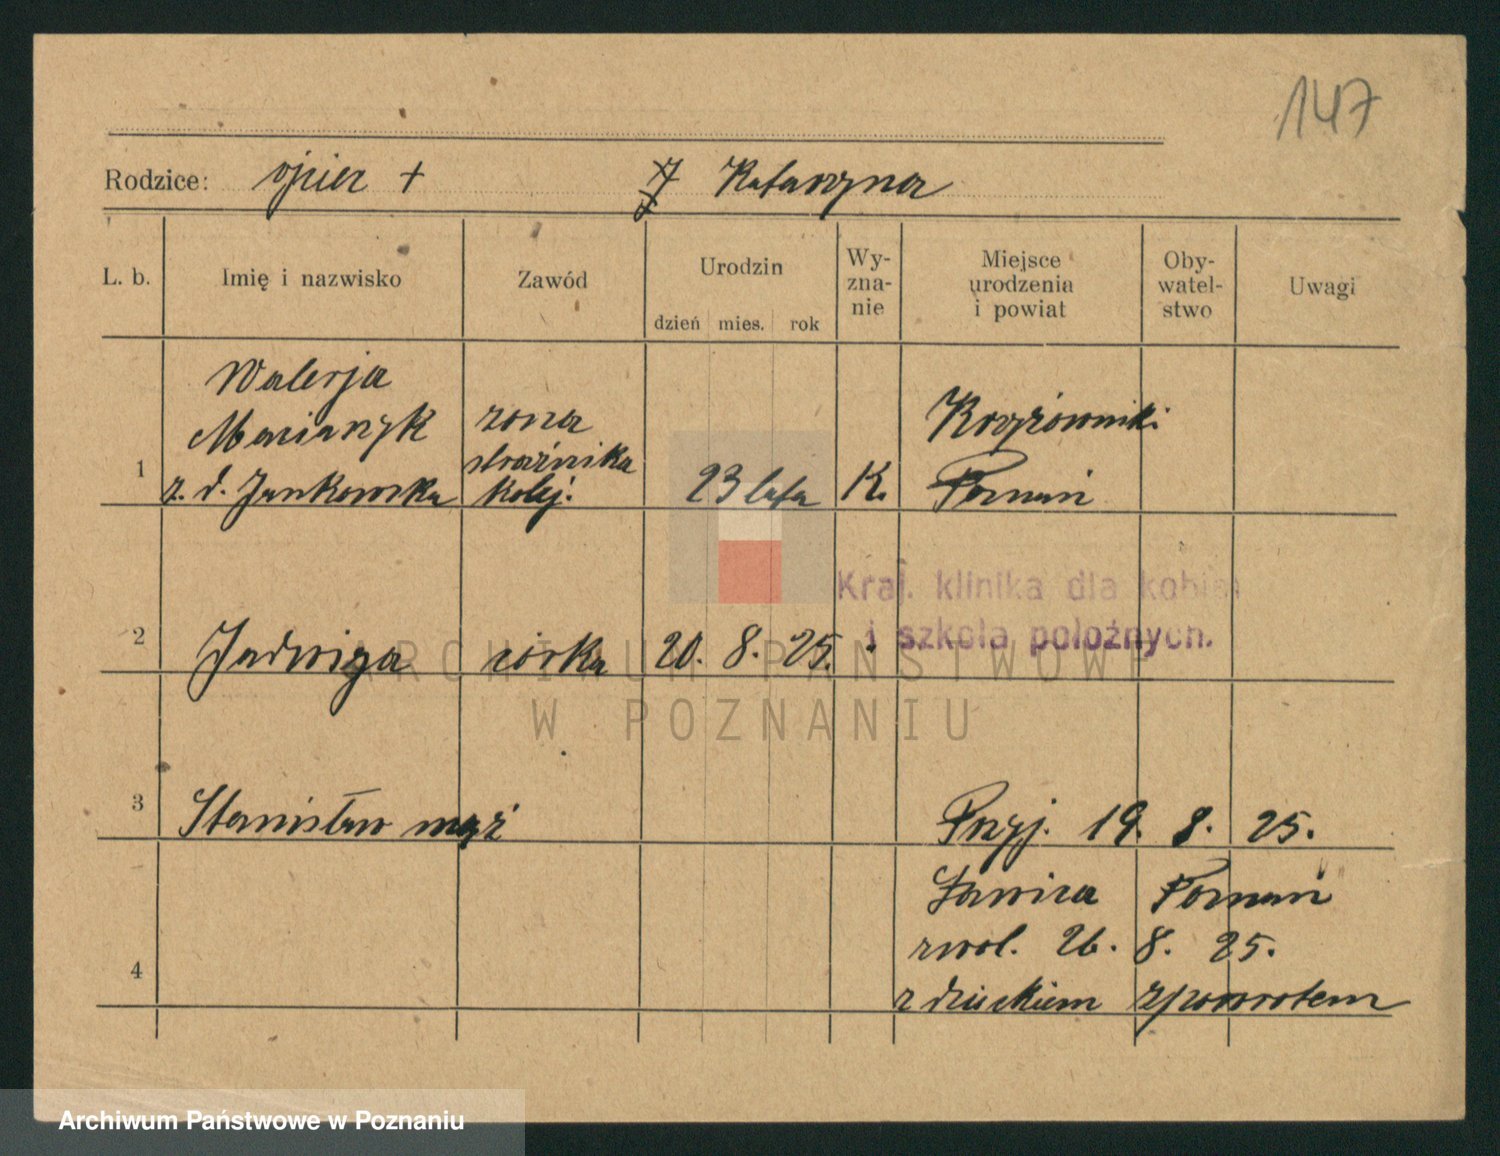 147
Rodzice: ojciec + Katarzyna
L. b. Imię i nazwisko Zawód Urodzin Wy- Miejsce Oby- Uwagi
zna- urodzenia watel-
dzień mies. rok nie i powiat stwo
Walerja
Marianzyk żona Krzyżowniki
strażnika
1 z. d. Jankowska kolej. 23 lata K. Poznań
Kraj. klinika dla kobiet
i szkoła położnych.
2 Jadwiga córka 20. 8. 25.
ARCHIWUM PAŃSTWOWE
W POZNANIU
3 Stanisław mąż Przyj. 19. 8. 25.
Ławica Poznań
zwol. 26. 8. 25.
4 z dzieckiem zpowrotem
Archiwum Państwowe w Poznaniu